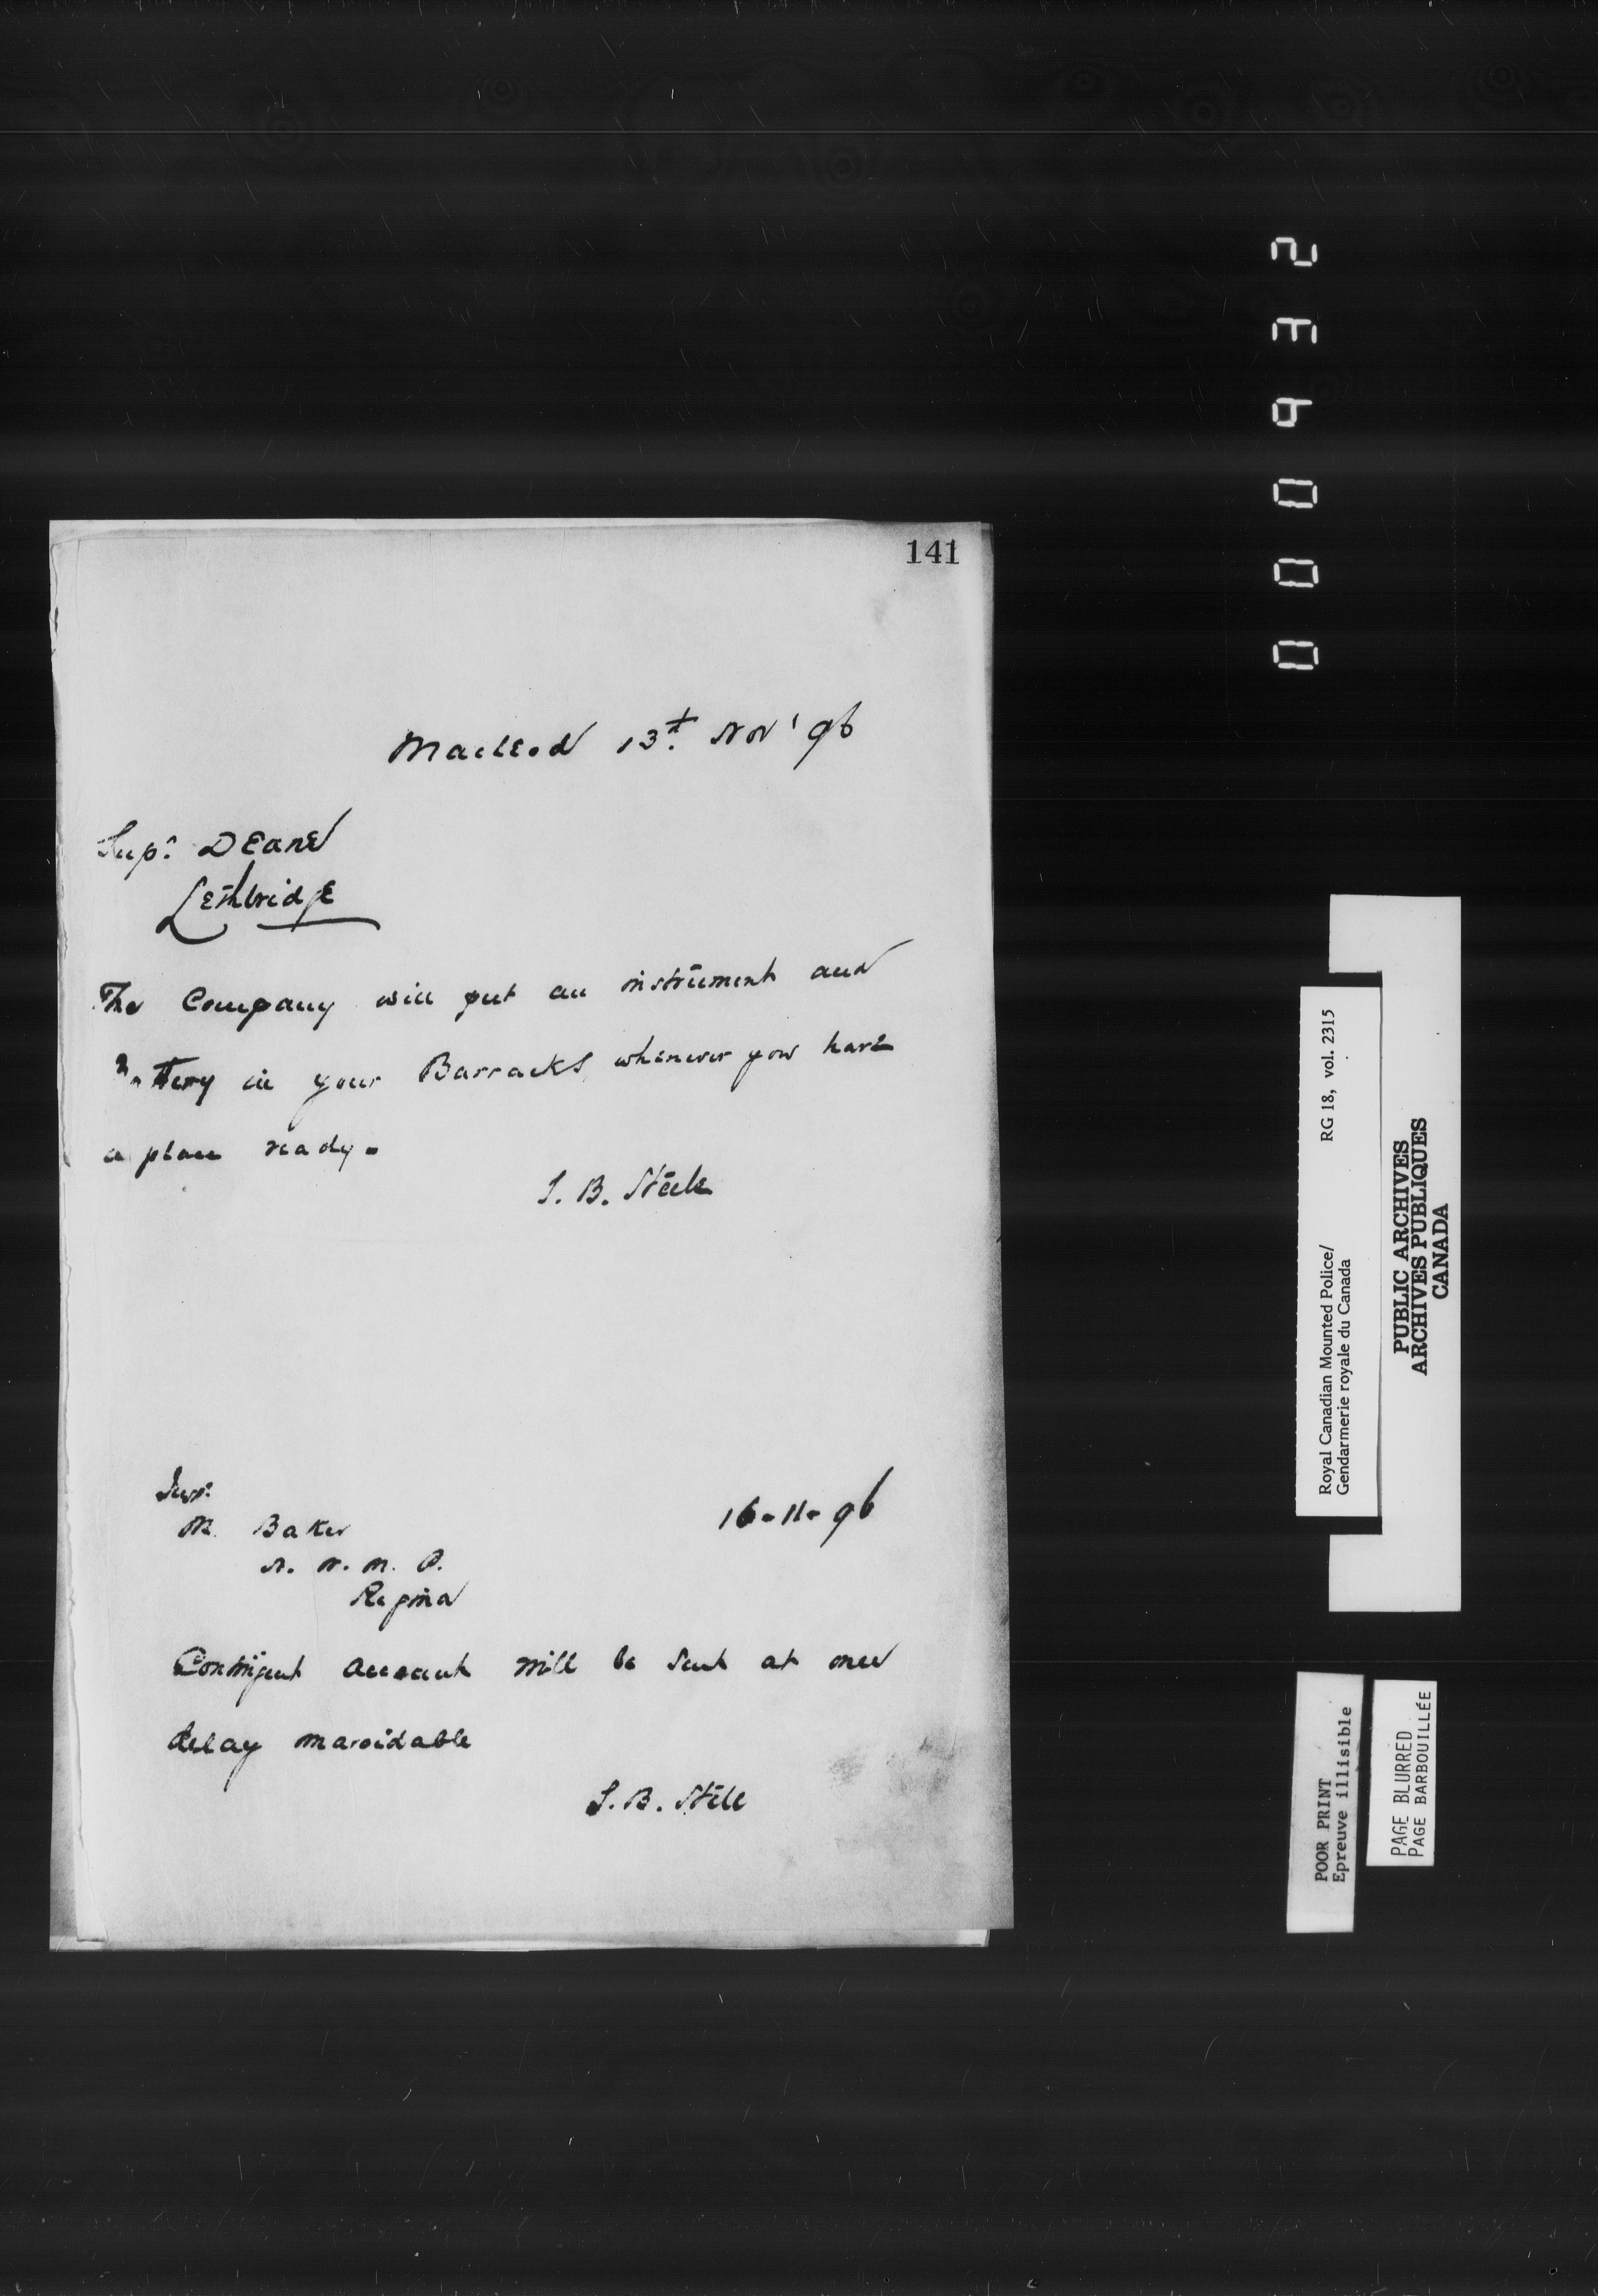 141
Macleod 13th Nov' 96
Supt Deane
Lethbridge
The Company will put an instrument and
Battery in your Barracks whenever you have
a place ready.
S. B. Steele
Supt
M. Baker
16-11-96
N. W. M. P.
Regina
Contingent Account will be sent at once
delay unavoidable
S. B. Steele
000932
Royal Canadian Mounted Police/ RG 18, vol. 2315
Gendarmerie royale du Canada
PUBLIC ARCHIVES
ARCHIVES PUBLIQUES
CANADA
POOR PRINT
Epreuve illisible
PAGE BLURRED
PAGE BARBOUILLÉE